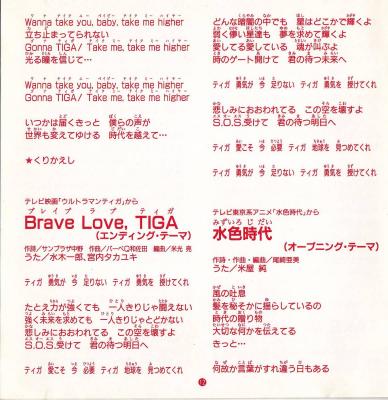 Wanna take you, baby, take me higher
立ち止まってられない
Gonna TIGA! Take me, take me higher
光る瞳を信じて…
Wanna take you, baby, take me higher
Gonna TIGA! Take me, take me higher
いつかは届くきっと 僕らの声が
世界も変えてゆける 時代を越えて…
★くりかえし
テレビ映画「ウルトラマンティガ」から
ブレイブ ラブ ティガ
Brave Love, TIGA
(エンディング・テーマ)
作詩/サンプラザ中野 作曲/バーベQ和佐田 編曲/米光 亮
うた/水木一郎、宮内タカユキ
ティガ 勇気が 今 足りない ティガ 勇気を 授けてくれ
たとえ力が強くても 一人きりじゃ闘えない
強く未来を求めても 一人きりじゃとどかない
悲しみにおおわれてる この空を壊すよ
S.O.S.受けて 君の待つ明日へ
ティガ 愛こそ 今 必要 ティガ 地球を 見つめてくれ
どんな暗闇の中でも 星はどこかで輝くよ
弱く儚い星達も 夢を求めて輝くよ
愛してる愛している 魂が叫ぶよ
時のゲート開けて 君の待つ未来へ
ティガ 勇気が 今 足りない ティガ 勇気を 授けてくれ
悲しみにおおわれてる この空を壊すよ
S.O.S.受けて 君の待つ明日へ
ティガ 愛こそ 今 必要 ティガ 地球を 見つめてくれ
ティガ 勇気が 今 足りない ティガ 勇気を 授けてくれ
テレビ東京系アニメ「水色時代」から
みずいろ じ だい
水色時代
(オープニング・テーマ)
作詩・作曲・編曲/尾崎亜美
うた/米屋 純
風の吐息
髪を秘そかに揺らしているの
時代の贈り物
大切な何かを伝えてる
きっと…
何故か言葉がすれ違う日もある
12